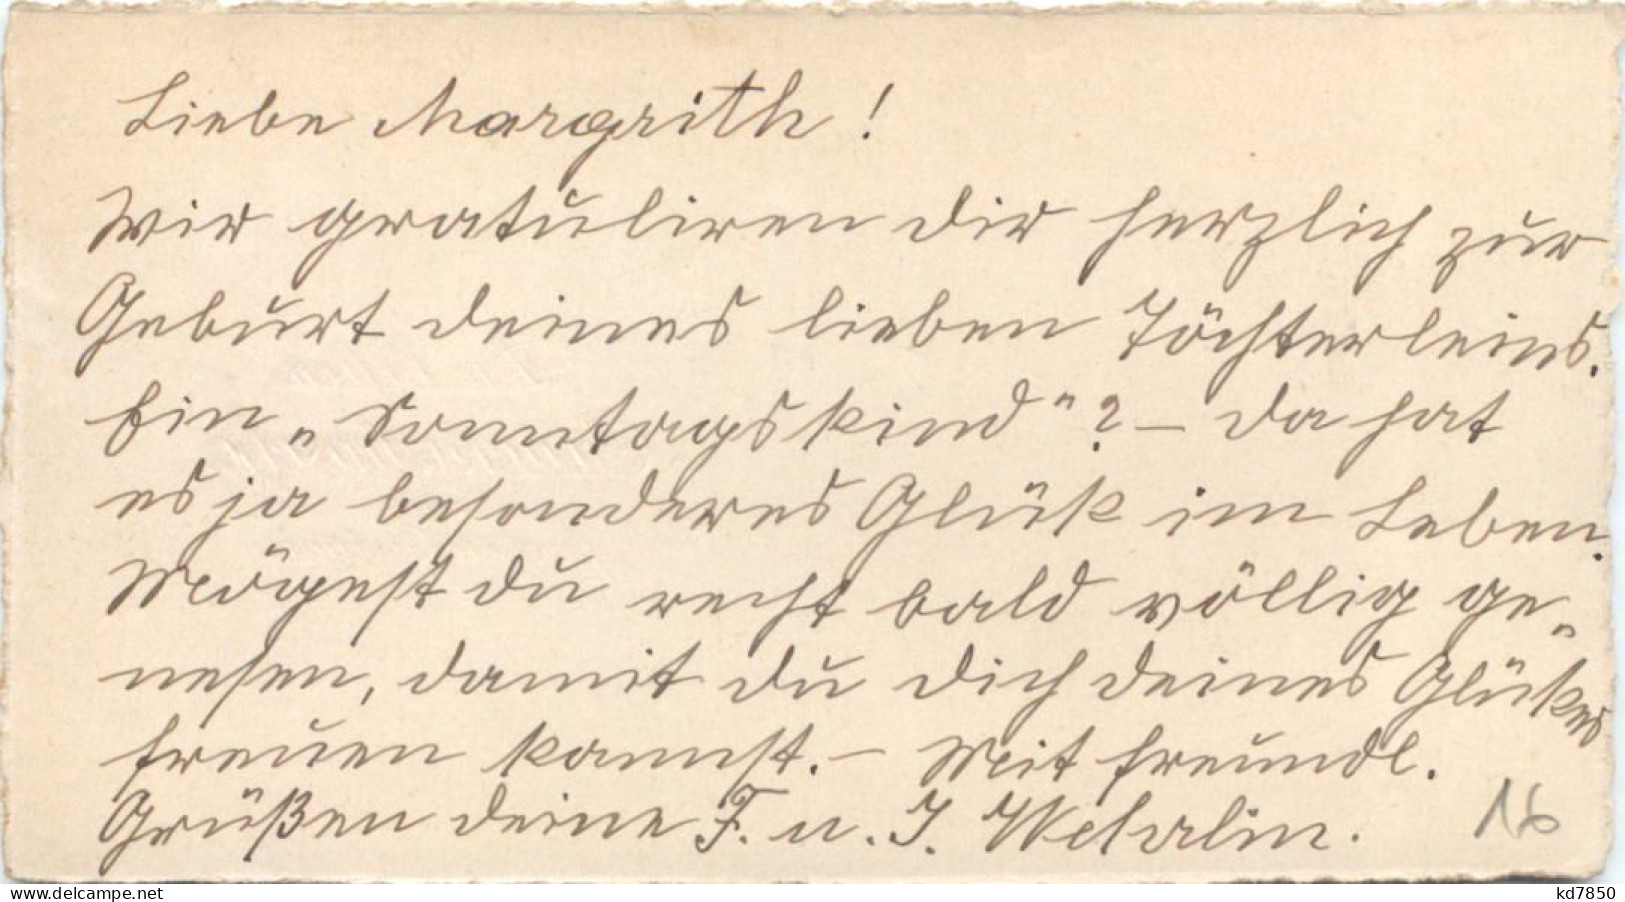 Liebe Margrith!
Wir gratuliren dir herzlich zur
Geburt deines lieben Töchterleins.
Ein „Sonntagskind"? – Da hat
es ja besonderes Glück im Leben.
Mögest du recht bald völlig ge„
nesen, damit du dich deines Glückes
freuen kannst. – Mit freundl.
Grüßen deine F. u. J.
16
www.delcampe.net
kd7850